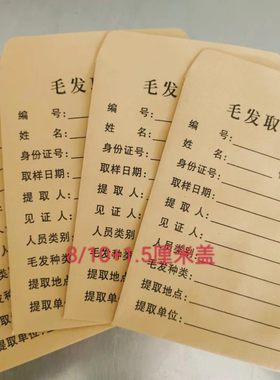 毛发取
编 号:
姓 名:
身份证号:
取样日期:
提 取 人:
见 证 人:
人员类别:
毛发种类:
提取地点:
提取单位:
毛发取
编 号:
姓 名:
身份证号:
取样日期:
提 取 人:
见 证 人:
人员类别:
毛发种类:
提取地点:
提取单位:
毛发取
编 号:
姓 名:
身份证号:
取样日期:
提 取 人:
见 证 人:
人员类别:
毛发种类:
提取地点:
提取单位:
8/10+1.5厘米盖